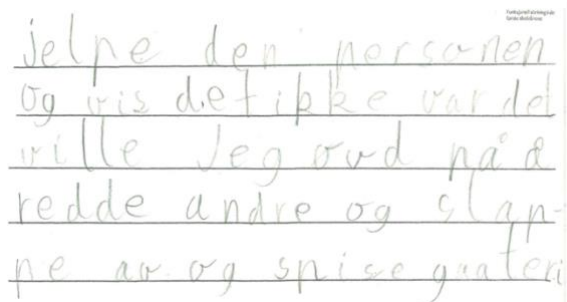 jelpe den personen
og vis det ikke var det
ville jeg øvd på å
redde andre og slap-
pe av og spise